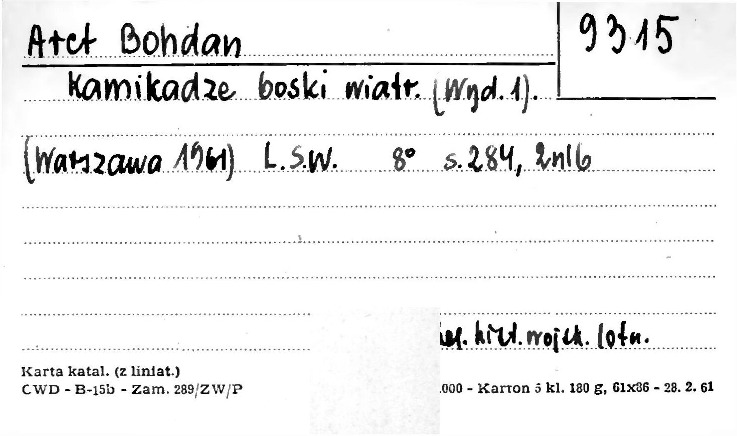 Arct Bohdan
9315
Kamikadze boski wiatr. (Wyd. 1).
(Warszawa 1961) L.S.W. 8° s. 284, 2nlb
hist. wojsk. lotn.
Karta katal. (z liniat.)
CWD - B-15b - Zam. 289/ZW/P
.000 - Karton 5 kl. 180 g, 61x86 - 28. 2. 61